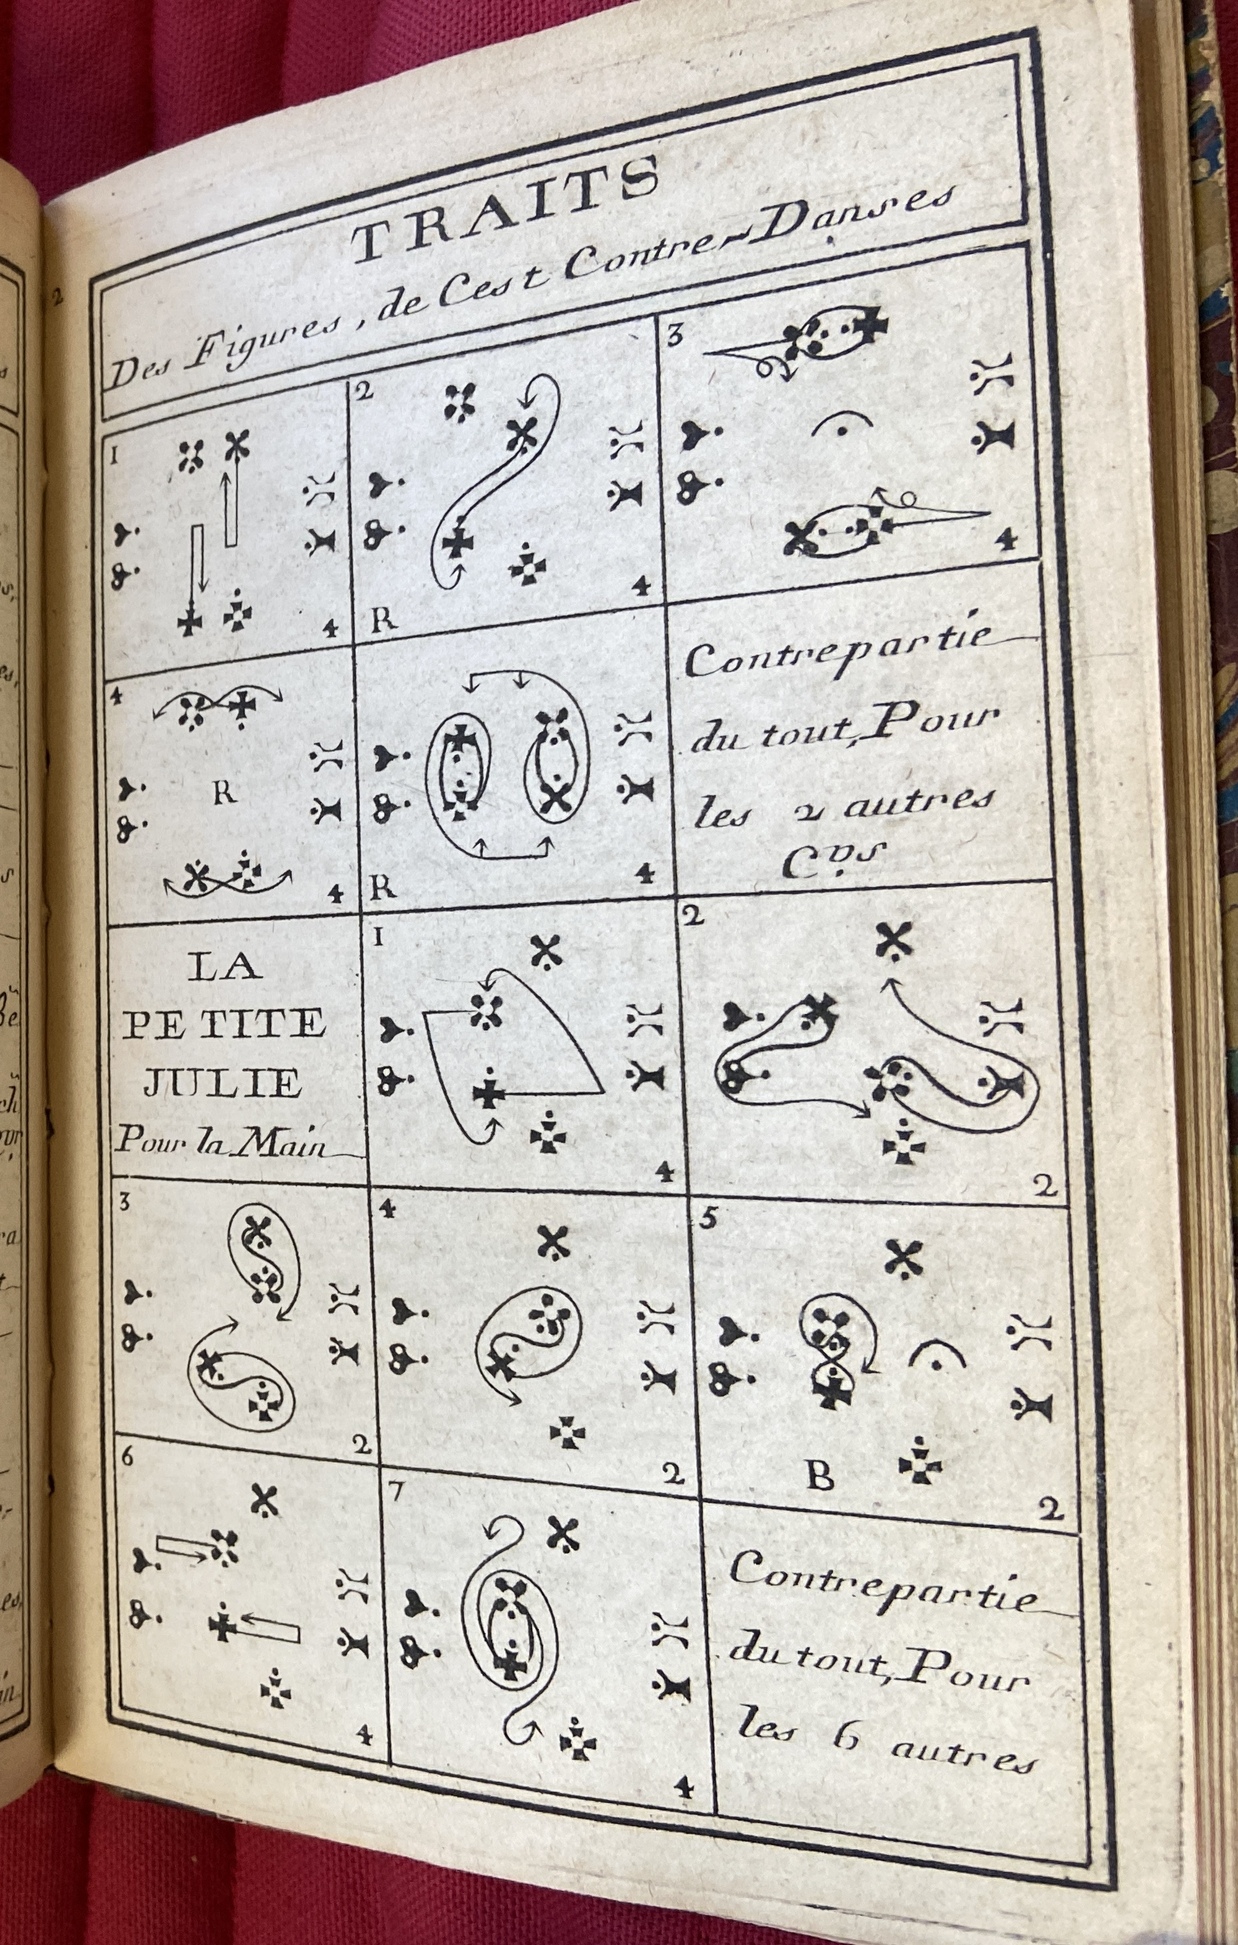 2
TRAITS
Des Figures, de Cest Contre-Danses
1
4
2
R
4
3
4
4
R
4
R
4
Contrepartie
du tout, Pour
les 2 autres
C.ps
LA
PETITE
JULIE
Pour la Main
1
4
2
2
3
2
4
2
5
B
2
6
4
7
4
Contrepartie
du tout, Pour
les 6 autres